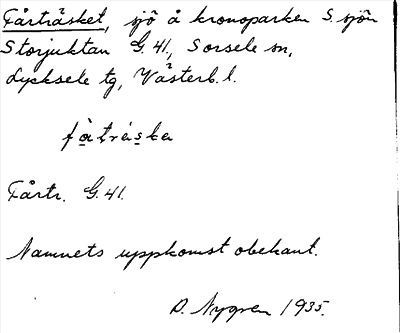 Fårträsket, sjö å kronoparken S. sjön
Storjuktan G. 41, Sorsele sn,
Lycksele tg, Västerb. l.
Fårtr. G. 41.
Namnets uppkomst obekant.
D. Nygren 1935.